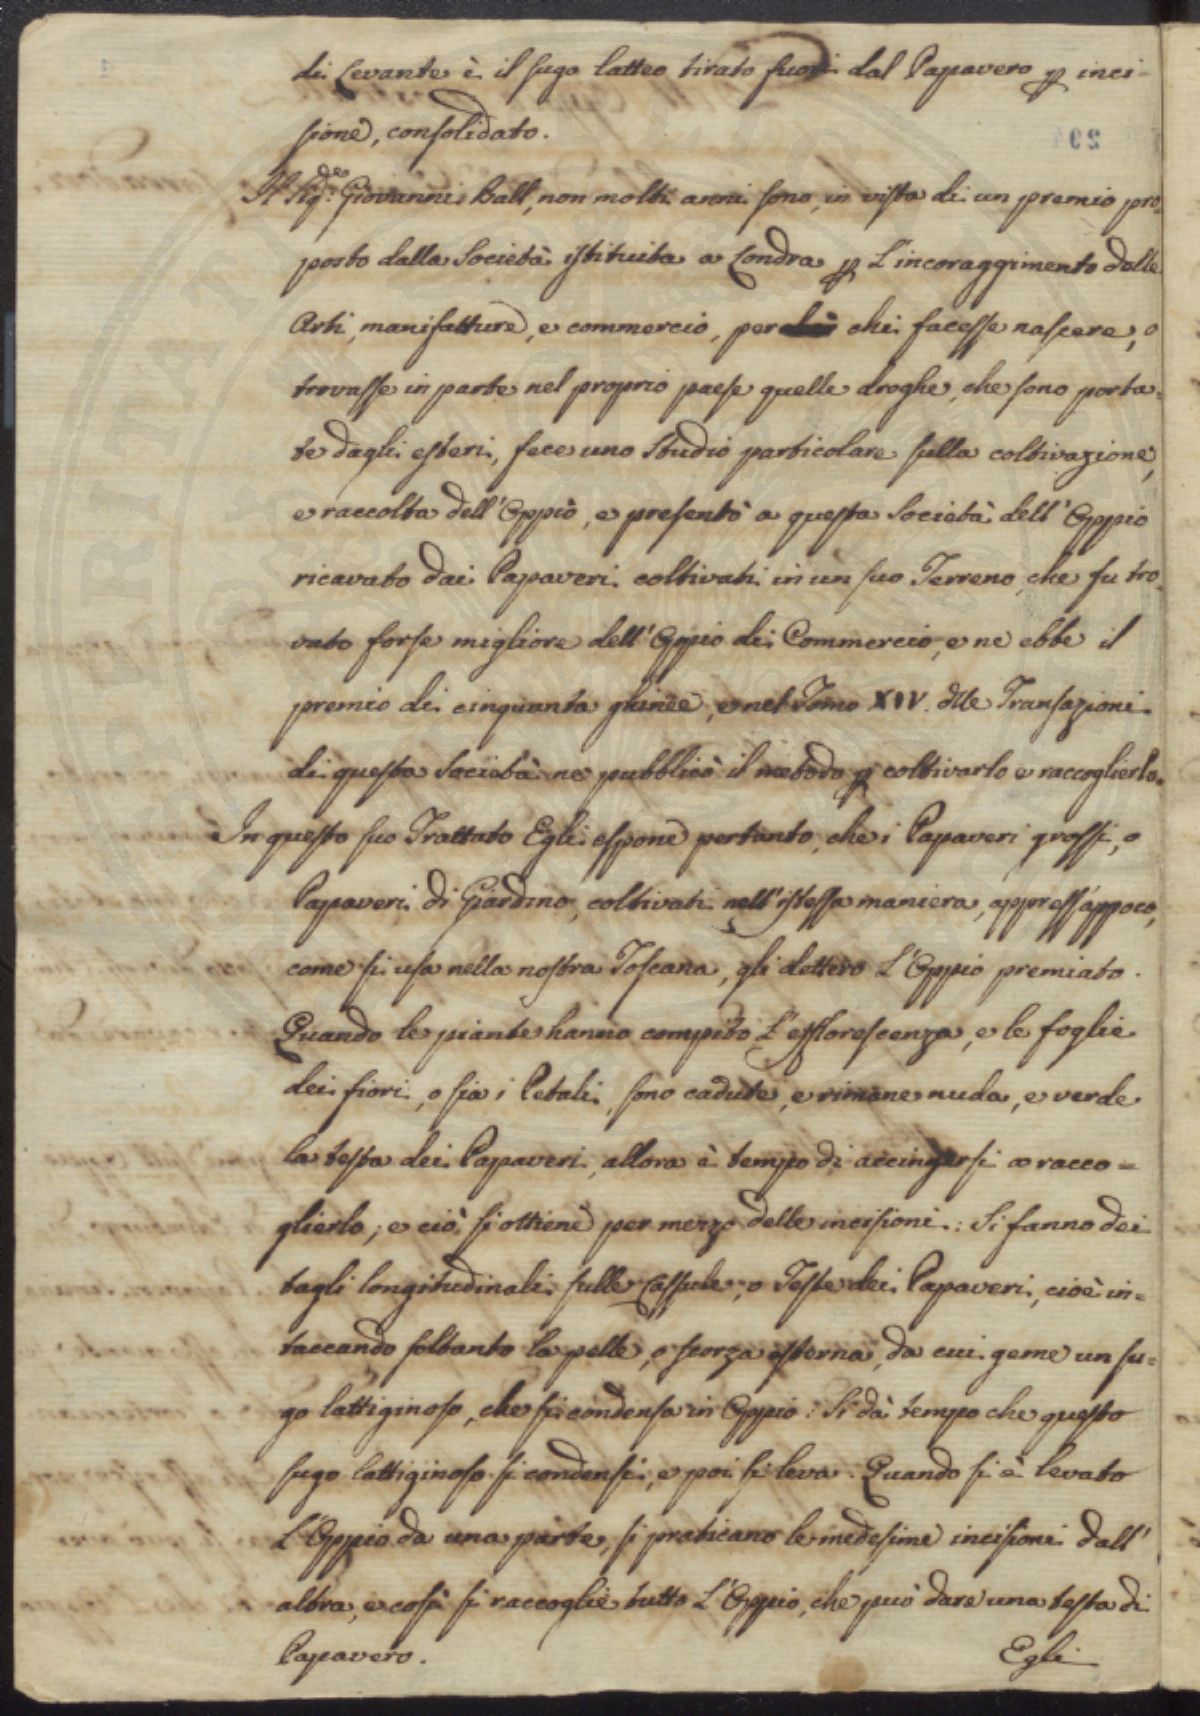 di Levante è il sugo latteo tirato fuori dal Papavero p inci-
sione, consolidato.
Il Sig.re Giovanni Ball, non molti anni sono, in vista di un premio pro-
posto dalla Società istituita a Londra p L'incoraggimento delle
Arti, manifatture, e commercio, per chi facesse nascere, o
trovasse in parte nel proprio paese quelle droghe, che sono porta-
te dagli esteri, fece uno studio particolare sulla coltivazione,
e raccolta dell'Oppio, e presentò a questa Società dell'Oppio
ricavato dai Papaveri coltivati in un suo Terreno, che fu tro-
vato forse migliore dell'Oppio di Commercio, e ne ebbe il
premio di cinquanta ghinee, e nel Tomo XIV. dlle Transazioni
di questa Società ne pubblicò il metodo p coltivarlo e raccoglierlo.
In questo suo Trattato Egli espone pertanto, che i Papaveri grossi, o
Papaveri di Giardino, coltivati nell'istessa maniera, appress'appoco,
come si usa nella nostra Toscana, gli dettero L'Oppio premiato.
Quando le piante hanno compito L'efflorescenza, e le foglie
dei fiori, o sia i Petali, sono cadute, e rimane nuda, e verde
la testa dei Papaveri, allora è tempo di accingersi a racco=
glierlo; e ciò si ottiene per mezzo delle incisioni: Si fanno dei
tagli longitudinali sulle Cassule, o Teste dei Papaveri, cioè in=
taccando soltanto la pelle, o scorza esterna, da cui geme un su=
go lattiginoso, che si condensa in Oppio: Si dà tempo che questo
sugo lattiginoso si condensi, e poi si leva. Quando si è levato
L'Oppio da una parte, si praticano le medesime incisioni dall'
altra, e così si raccoglie tutto L'Oppio, che può dare una testa di
Papavero.
Egli